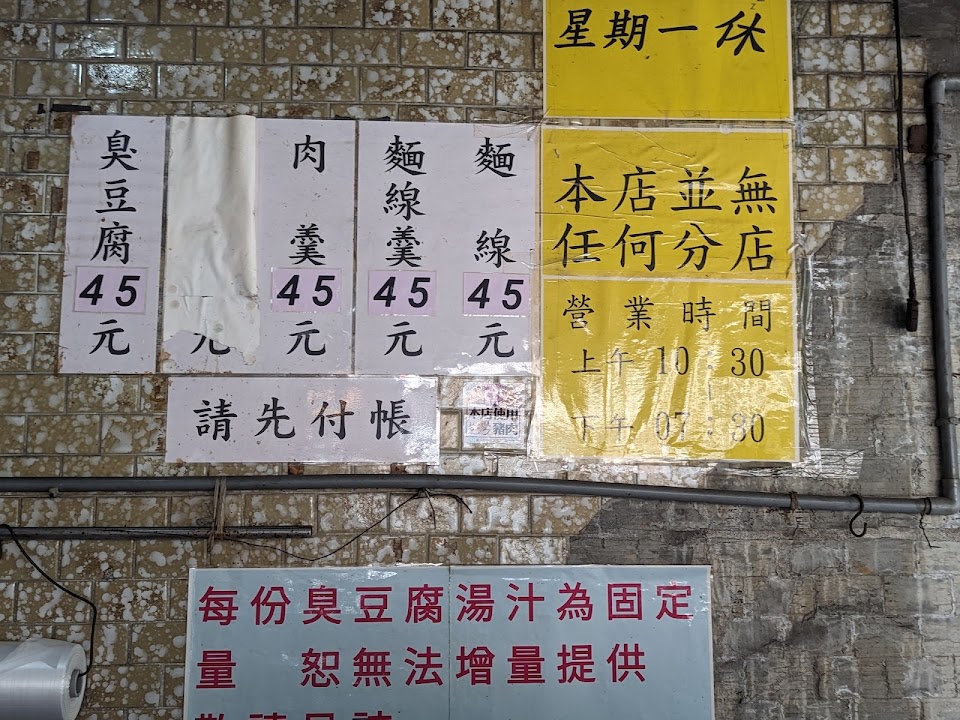 星期一休
臭豆腐
45
元
元
肉羹
45
元
麵線羹
45
元
麵線
45
元
本店並無
任何分店
營業時間
上午 10:30
|
下午 07:30
請先付帳
本店使用
豬肉
每份臭豆腐湯汁為固定
量 恕無法增量提供